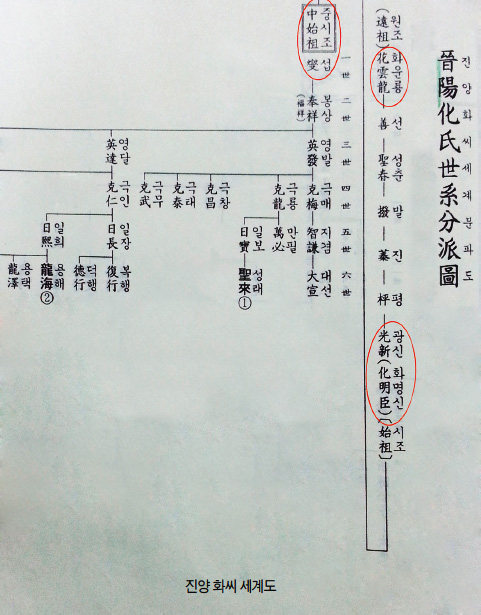 진양화씨세계분파도
晉陽化氏世系分派圖
원조 화운룡 선 성춘 발 진 평 광신 화명신 시조
(遠祖) 花雲龍 善 聖春 撥 蓁 枰 光新(化明臣)(始祖)
一世 二世 三世 四世 五世 六世
중시조 섭 봉상 영발 극매 지겸 대선
中始祖 燮 奉祥 英發 克梅 智謙 大宣
(福祥)
극룡 만필
克龍 萬必
일보 성래
日寶 聖來 ①
극창
克昌
극태
克泰
극무
克武
영달 극인 일장 복행
英達 克仁 日長 復行
덕행
德行
일희 용해
日熙 龍海 ②
용택
龍澤
진양 화씨 세계도